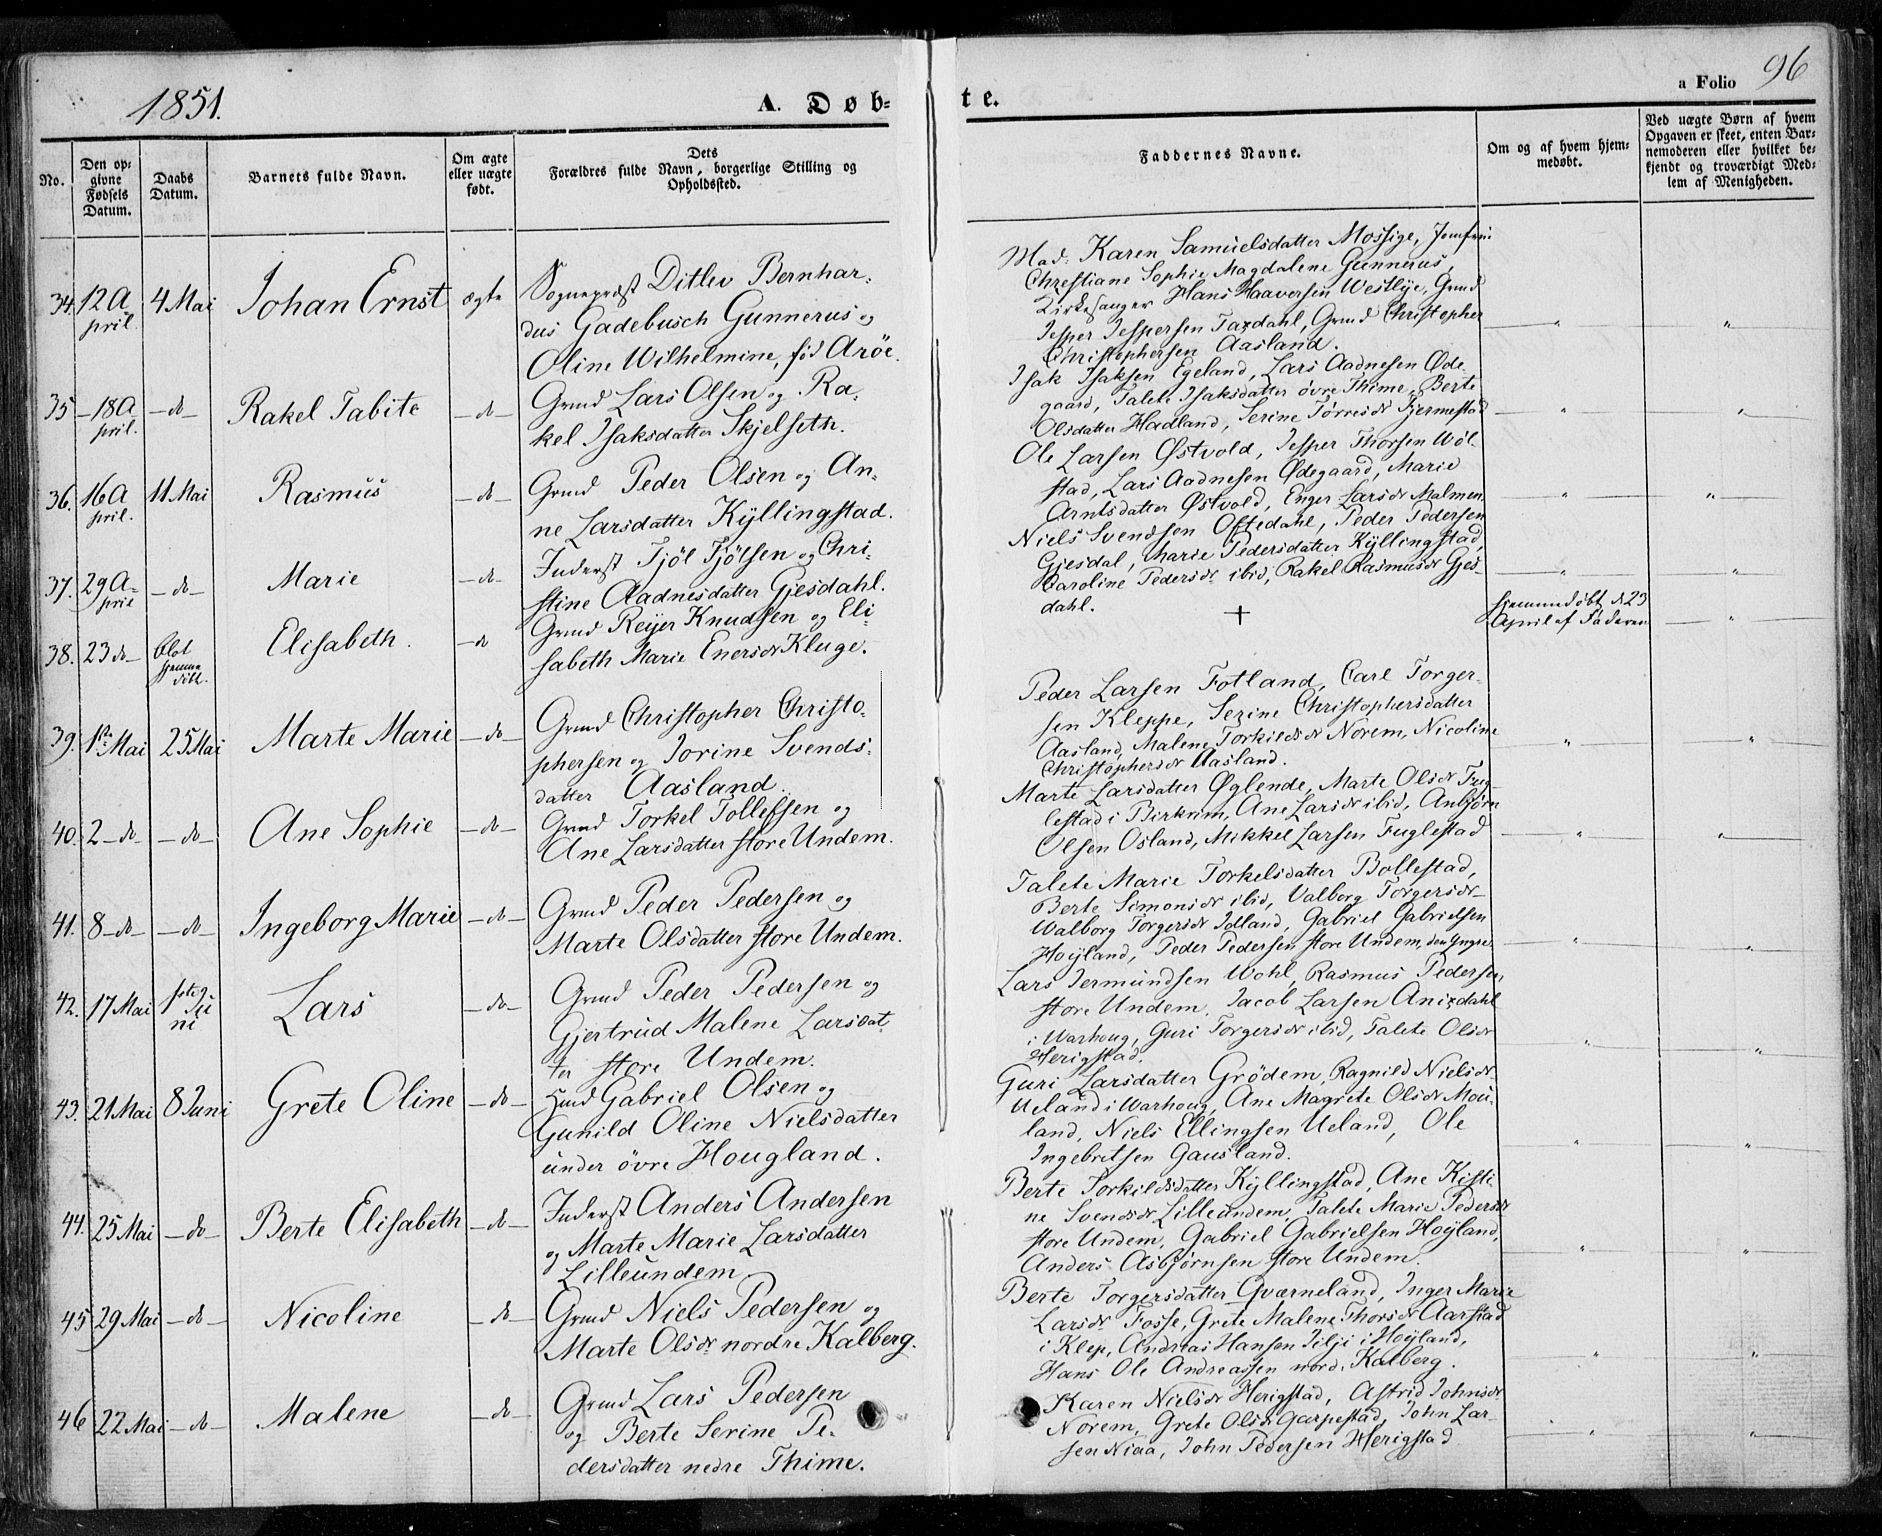 1851.
A. Døb-
te.
a Folio 96
No.
Den op-
givne
Fødsels
Datum.
Daabs
Datum.
Barnets fulde Navn.
Om ægte
eller uægte
født.
Dets
Forældres fulde Navn, borgerlige Stilling og
Opholdssted.
Faddernes Navne.
Om og af hvem hjem-
medøbt.
Ved uægte Børn af hvem
Opgaven er skeet, enten Bar-
nemoderen eller hvilket be-
kjendt og troværdigt Med-
lem af Menigheden.
34. 12 A
pril
4 Mai
Johan Ernst
ægte
Sognepræst Ditlev Bernhar-
dus Gadebusch Gunnerus og
Oline Wilhelmine, fød Arøe.
Mad: Karen Samuelsdatter Mossige, Jomfru
Christiane Sophie Magdalene Gunnerus,
Kirkesanger Hans Haaversen Westlye, Grmd
Jesper Jespersen Taxdahl, Grmd Christopher
Christophersen Aasland.
35 18 A
pril.
do
Rakel Tabite
do
Grmd Lars Olsen og Ra-
kel Isaksdatter Skjelseth.
Isak Isaksen Egeland, Lars Aadnesen Øde-
gaard, Talete Isaksdatter øvre Thime, Berte
Olsdatter Hadland, Serine Tørresdr Tjermestad
36. 16 A
pril.
11 Mai
Rasmus
do
Grmd Peder Olsen og An-
ne Larsdatter Kyllingstad.
Ole Larsen Østvold, Jesper Thorsen Wøl-
stad, Lars Aadnesen Ødegaard, Marie
Arntsdatter Østvold, Enger Larsdr Malmen
37. 29 A-
pril
do
Marie
do
Inderst Tjøl Tjølsen og Chri-
stine Aadnesdatter Gjesdahl.
Niels Svendsen Oftedahl, Peder Pedersen
Gjesdal, Marie Pedersdatter Kyllingstad,
Caroline Pedersdr ibid, Rakel Rasmusdr Gjes-
dahl.
38. 23 do
blot
hjemme
døbt.
Elisabeth.
do
Grmd Reijer Knudsen og Eli-
sabeth Marie Enersdr Kluge.
+
hjemmedøbt d 23
April af Faderen
39. 1ste Mai
25 Mai
Marte Marie
do
Grmd Christopher Christo-
phersen og Jorine Svends-
datter Aasland.
Peder Larsen Fotland, Carl Torger-
sen Kleppe, Serine Christophersdatter
Aasland, Malene Torkildsdr Norem, Nicoline
Christophersdr Aasland.
40. 2 do
do
Ane Sophie
do
Grmd Torkel Tollefsen og
Ane Larsdatter store Undem.
Marte Larsdatter Øglende, Marte Olsdr Fug-
lestad i Birkrim, Ane Larsdr ibid, Anbjørn
Olsen Osland, Mikkel Larsen Fuglestad
41. 8 do
do
Ingeborg Marie
do
Grmd Peder Pedersen og
Marte Olsdatter store Undem.
Talete Marie Torkelsdatter Bollestad,
Berte Simonsdr ibid, Valborg Torgersdr
Walborg Torgersdr Idland, Gabriel Gabrielsen
Høyland, Peder Pedersen store Undem, den yngre
42. 17 Mai
1ste Ju
ni
Lars
do
Grmd Peder Pedersen og
Gjertrud Malene Larsdat-
ter store Undem.
Lars Jermundsen Wohl, Rasmus Pedersen
store Undem, Jacob Larsen Anixdahl
i Warhoug, Guri Torgersdr ibid, Talete Olsdr
Herigstad.
43. 21 Mai
8 Juni
Grete Oline
do
Husmd Gabriel Olsen og
Gunild Oline Nielsdatter
under øvre Hougland.
Guri Larsdatter Grødem, Ragnild Nielsdr
Ueland i Warhoug, Ane Magrete Olsdr Mou-
land, Niels Ellingsen Ueland, Ole
Ingebretsen Gausland.
44. 25 Mai
do
Berte Elisabeth
do
Inderst Anders Andersen
og Marte Marie Larsdatter
Lilleundem
Berte Torkildsdatter Kyllingstad, Ane Kisti
ne Svendsdr Lilleundem, Talete Marie Pedersdr
store Undem, Gabriel Gabrielsen Høyland,
Anders Asbjørnsen store Undem.
45 29 Mai
do
Nicoline
do
Grmd Niels Pedersen og
Marte Olsdr nordre Kalberg.
Berte Torgersdatter Qværneland, Inger Marie
Larsdr Fosse, Grete Malene Thorsdr Aarstad
i Klep, Andreas Hansen Tilji i Høyland,
Hans Ole Andreassen nord. Kalberg.
46 22 Mai
do
Malene
do
Grmd Lars Pedersen
og Berte Serine Pe-
dersdatter nedre Thime.
Karen Nielsdr Herigstad, Astrid Johnsdr
Norem, Grete Olsdr Garpestad, John Lar-
sen Niaa, John Pedersen Herigstad